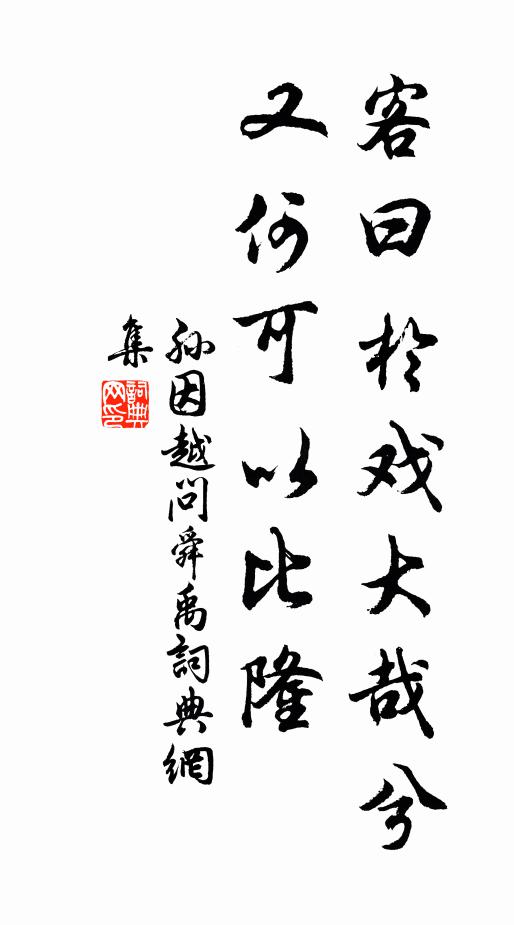 客曰於戏大哉兮
又何可以比隆
孙因越问舜禹詞典網
集
詞典
网印